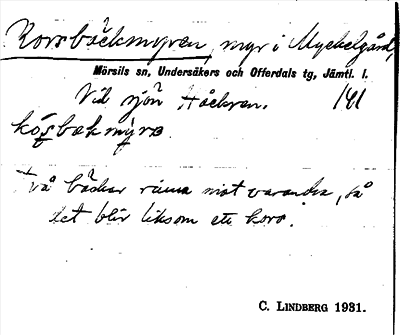 Korsbäckmyren, myr i Myckelgård,
Mörsils sn, Undersåkers och Offerdals tg, Jämtl. l.
Vid sjön Håckren. 141
kósbækmýre
Två bäckar rinna mot varandra, så
det blir liksom ett kors.
C. LINDBERG 1931.